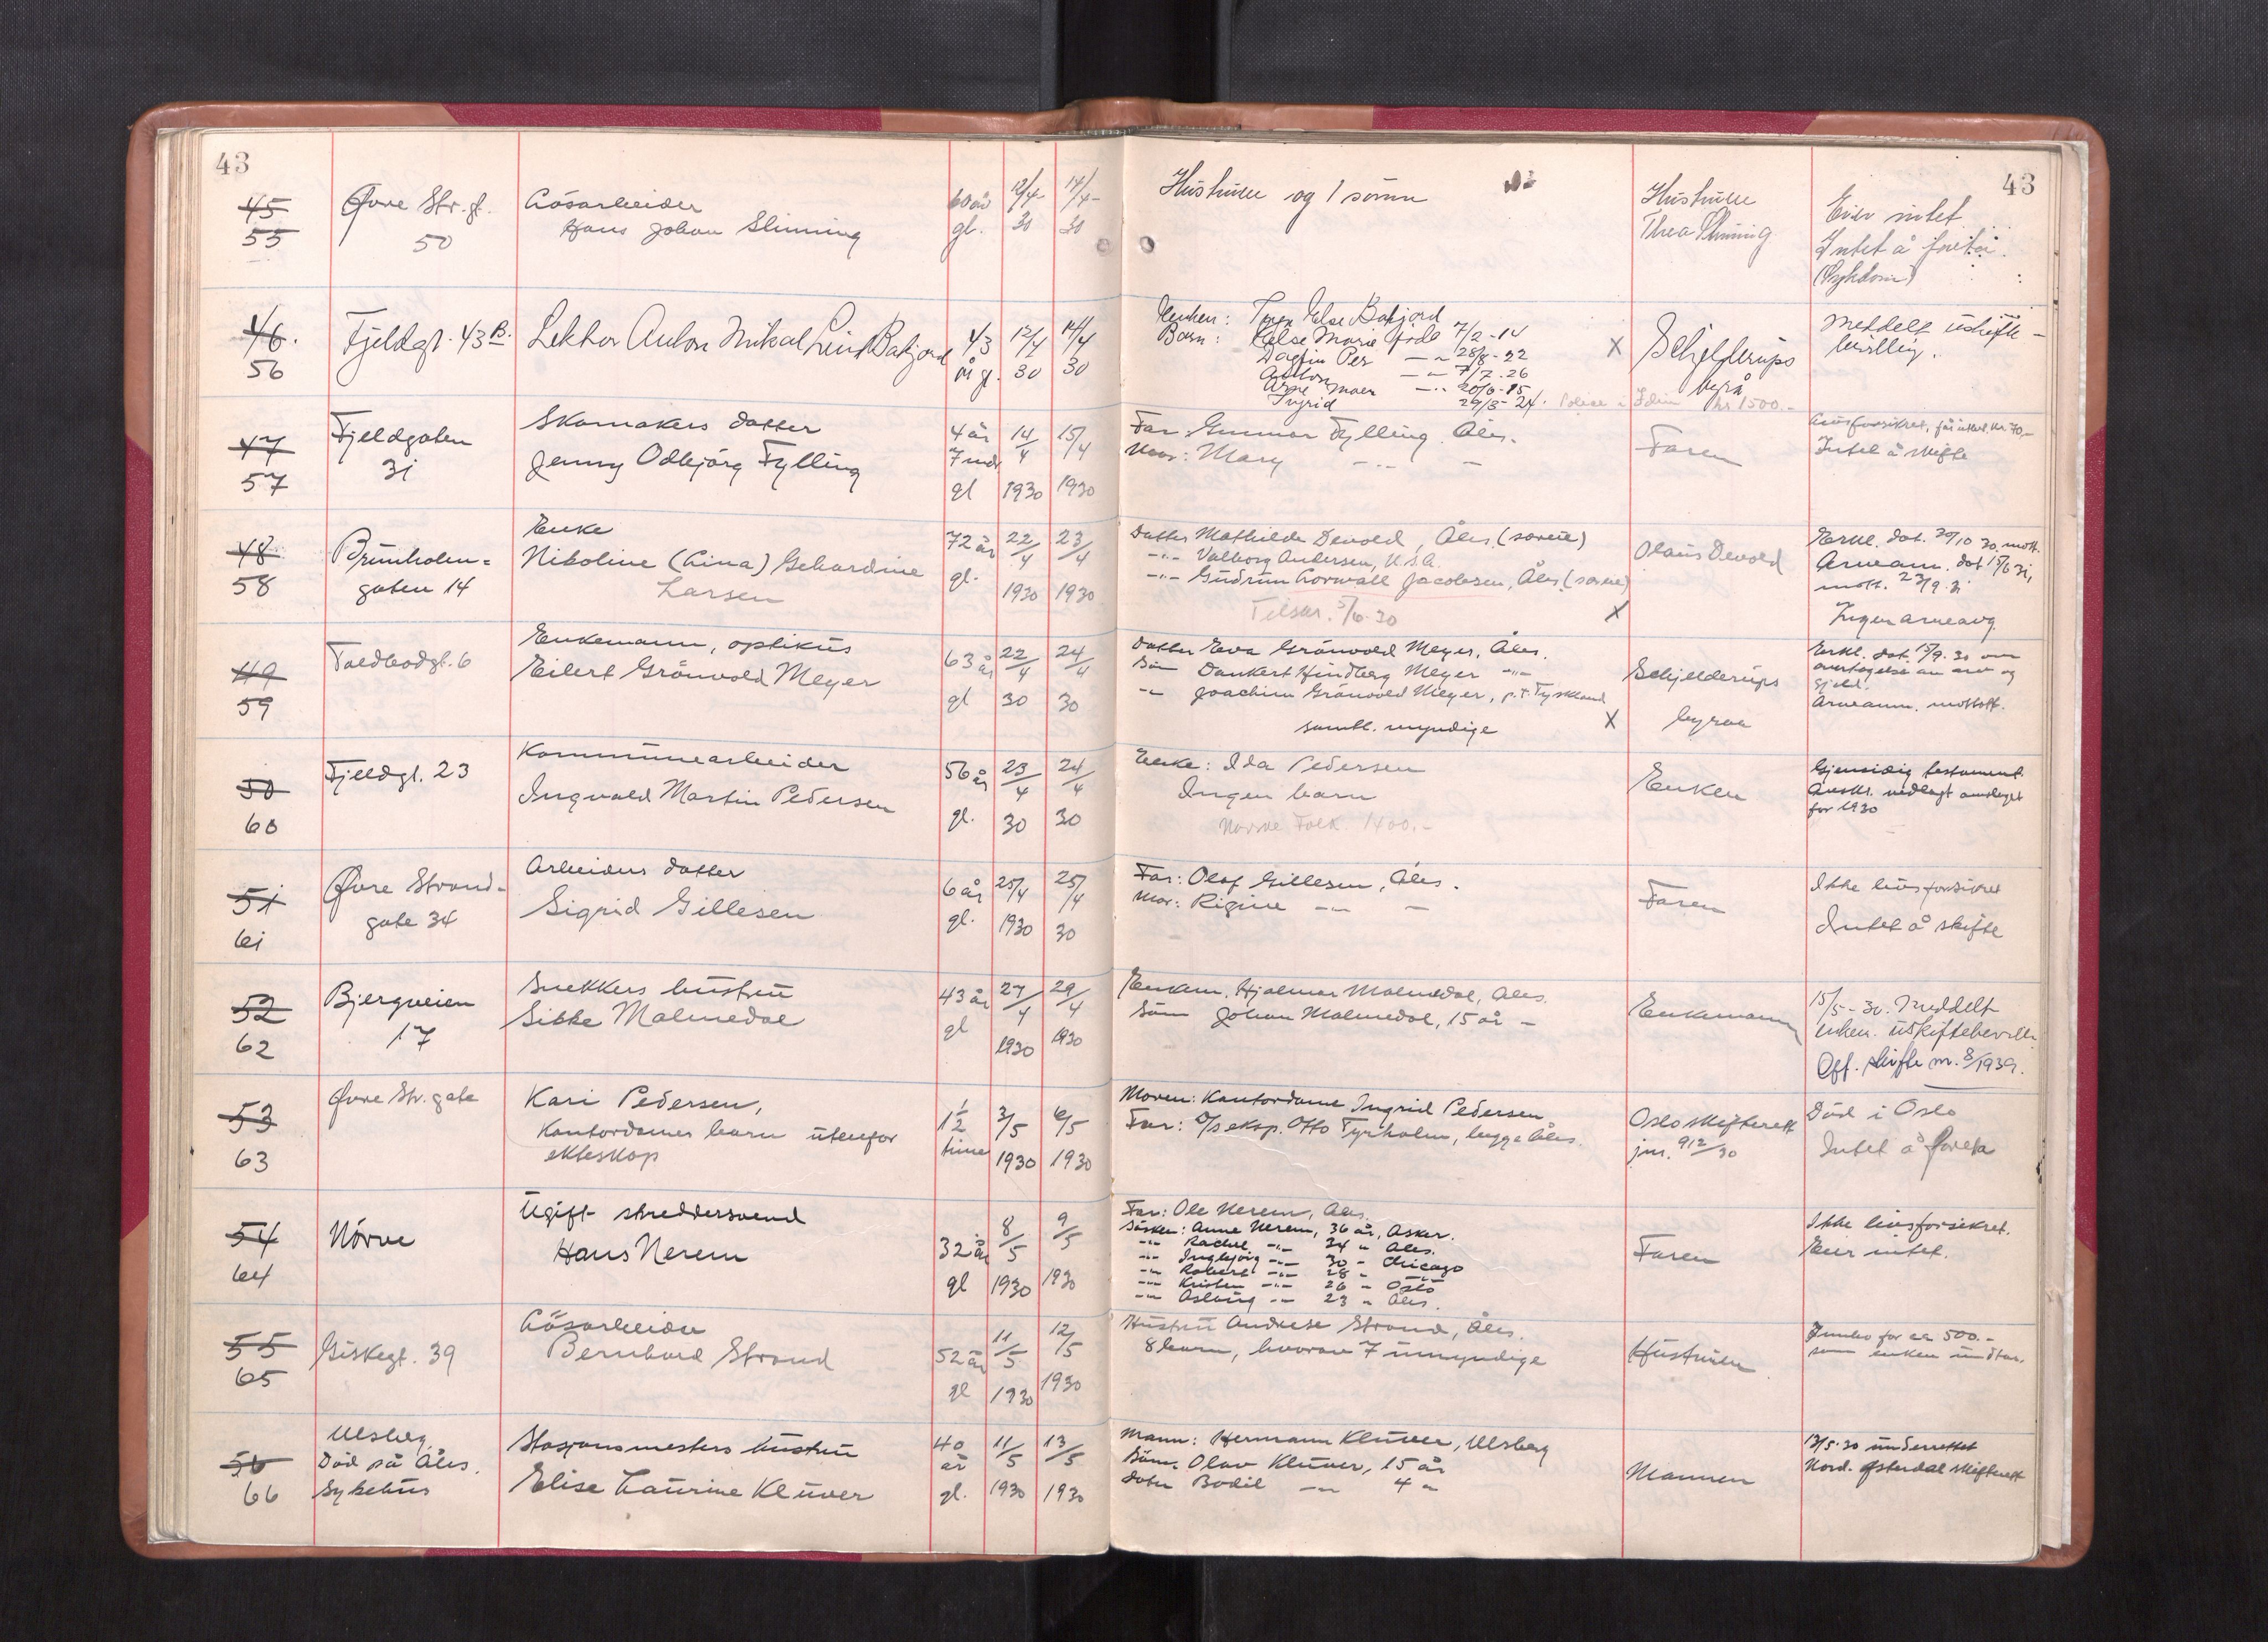 43
43
45
55
Øvre Str. gt.
50
Løsarbeider
Hans Johan Slinning
60 år
gl.
12/4-
30
14/4-
30
Hustruen og 1 sønn
Hustruen
Thea Slinning
Eier intet
Intet å foreta.
(Sykdom)
46.
56
Fjeldgt. 43 B.
Lektor Anton Mikal Lind Bakjord
43
år gl.
12/4
30
14/4
30
Enken: Else Bakjord
Barn: Else Marie født 7/2-14
Dagfin Per -"- 28/8-22
Anton -"- 7/7-26
Arne -"- 20/6-15
Ingrid 29/3-24.
Polise i Idun kr 1500.-
X
Schjelderups
byrå
Meddelt uskifte-
bevilling.
47
57
Fjeldgaten
31
Skomakers datter
Jenny Odbjørg Fylling
4 år
7 mdr
gl
14/4
1930
15/4
1930
Far: Gunnar Fylling, Åles.
Mor: Mary -"- -
Faren
Intet å skifte
48
58
Brunholm=
gaten 14
Enke
Nikoline (Lina) Gehardine
Larsen
72 år
gl.
22/4
1930
23/4
1930
Datter Mathilde Devold, Åles.
-"- Valborg Andersen, U.S.A.
-"- Gudrun Jacobsen, Åles.
5/6-30
X
Olaus Devold
Erkl. dat. 30/10 30 mott.
Arveanm. dat 15/6 31,
mott. 23/9-31
Ingen arveavg.
49
59
Toldbodgt. 6
Enkemann, optikus
Eilert Grönvold Meyer
63 år
gl
22/4
30
24/4
30
Datter Eva Grönvold Meyer, Åles.
Sön Dankert Hindberg Meyer -"-
-"- Joachim Grönvold Meyer, p.t. Tyskland
samtl. myndige
X
Schjelderups
byraa
Erkl. dat. 15/9-30 om
overtagelse av arv og
gjeld.
Arveanm. mottatt.
50
60
Fjeldgt. 23
Kommunearbeider
Ingvald Martin Pedersen
56 år
gl.
23/4
30
24/4
30
Enke: Ida Pedersen
Ingen barn
Norske Folk 1400.-
Enken
Gjensidig testament.
for 1930
51
61
Øvre Strand-
gate 34
Arbeiders datter
Sigrid Gillesen
6 år
gl.
25/4
1930
25/4
30
Far: Olaf Gillesen, Åles.
Mor: Rigine -"- -
Faren
Ikke livsforsikret
Intet å skifte
52
62
Bjergveien
17
Snekkers hustru
Sikke Malmedal
43 år
gl
27/4
1930
29/4
1930
Enkem. Hjalmar Malmedal, Åles.
Sönn Johan Malmedal, 15 år -
Enkemannen
15/5-30. Meddelt
enkem. uskiftebevilln.
Off. skifte nr. 8/1939.
53
63
Øvre Str. gate
Kari Pedersen,
Kontordames barn utenfor
ekteskap
1 1/2
time
3/5
1930
6/5
1930
Moren: Kontordame Ingrid Pedersen
Far: eksp. Otto Tyrholm, begge Åles.
Oslo skifterett
jnr. 912/30
Död i Oslo
Intet å foreta
54
64
Nörve
Ugift skreddersvend
Hans Nerem
32 år
gl
8/5
1930
9/5
1930
Far: Ole Nerem, Åles.
Søsken: Anne Nerem, 36 år, Asker.
-"- Rachel -"- 34 " Åles.
-"- Ingbjörg -"- 30 - Chicago
-"- Robert -"- 28 - -"-
-"- Kristen -"- 26 - Oslo
-"- Aslaug -"- 23 - Åles.
Faren
Ikke livsforsikret.
Eier intet.
55
65
Giskegt. 39
Løsarbeider
Bernhard Strand
52 år
gl
11/5
1930
12/5
1930
Hustru Andrese Strand, Åles.
8 barn, hvorav 7 umyndige
Hustruen
Innbo for ca 500.-
som enken
56
66
Ulsberg
Död på Åles.
Sykehus
Stasjonsmesters hustru
Elise Laurine Klüver
40
år
gl.
11/5
1930
13/5
1930
Mann: Hermann Klüver, Ulsberg
Sönn Olav Klüver, 15 år
Datter Bodil -"- 4 "
Mannen
13/5-30 underrettet
Nord-Østerdal skifterett